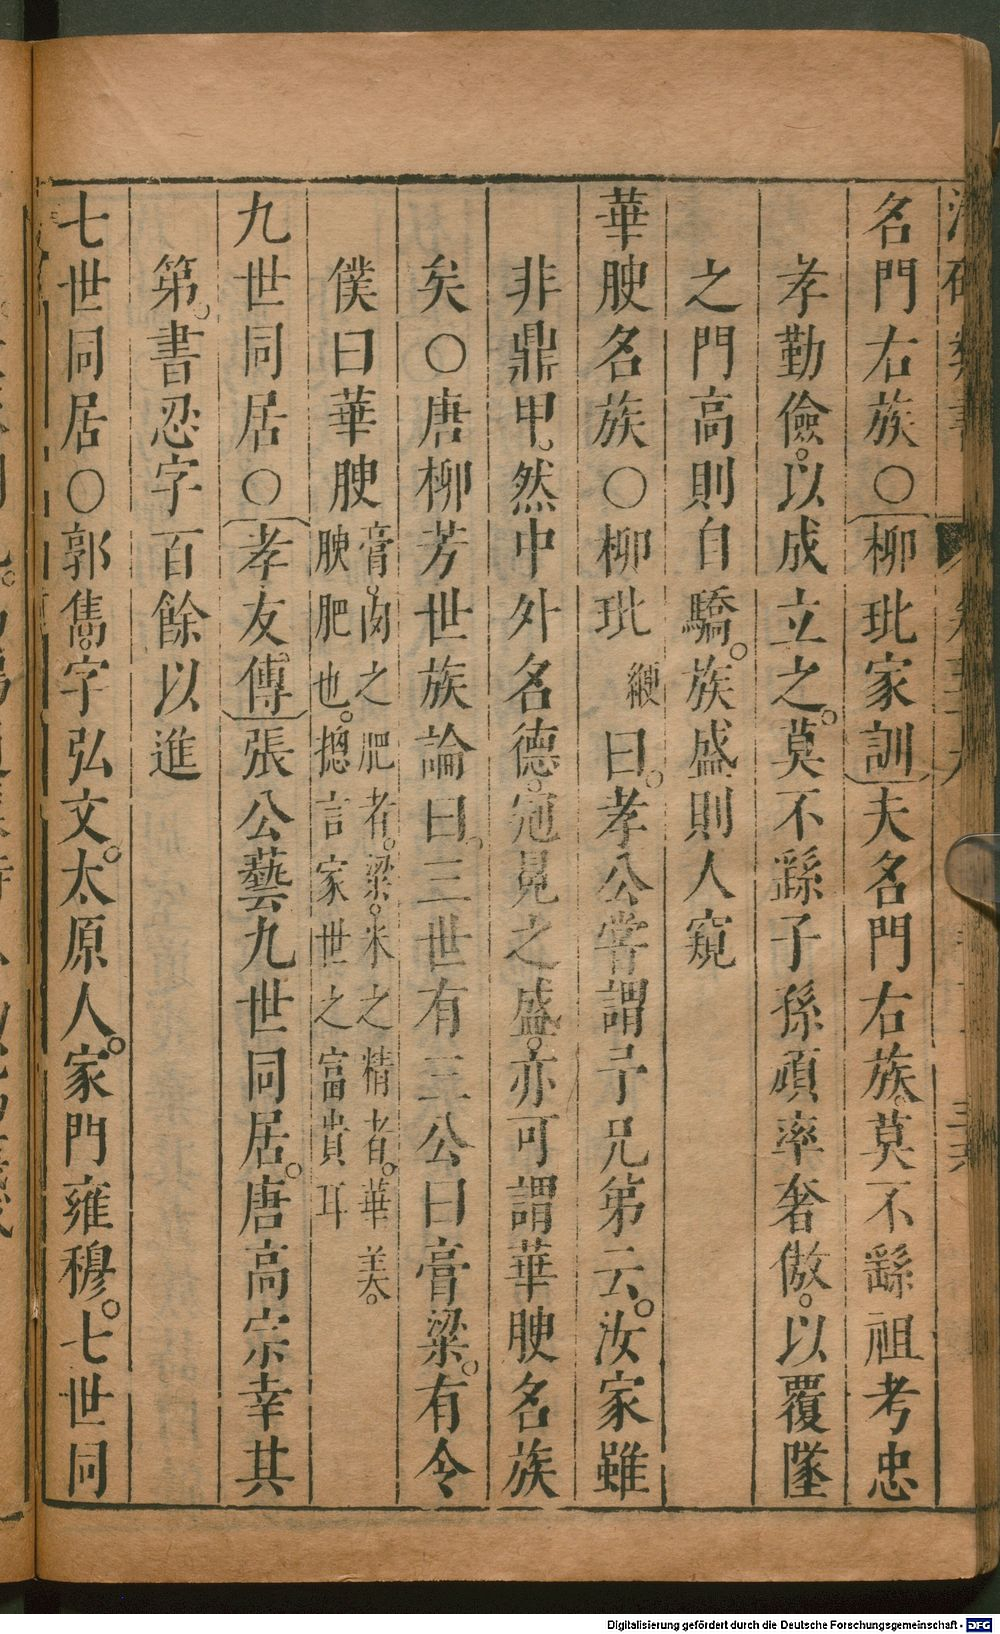 名門右族○柳玭家訓夫名門右族莫不繇祖考忠
孝勤儉以成立之莫不繇子孫頑率奢傲以覆墜
之門高則自驕族盛則人窺
華腴名族○柳玭緶曰孝公嘗謂予兄第云汝家雖
非鼎甲然中外名德冠冕之盛亦可謂華腴名族
矣○唐柳芳世族論曰三世有三公曰膏粱有令
僕曰華腴膏肉之肥者粱米之精者華美
腴肥也摠言家世之富貴耳
九世同居○孝友傳張公藝九世同居唐高宗幸其
第書忍字百餘以進
七世同居○郭雋字弘文太原人家門雍穆七世同
Digitalisierung gefördert durch die Deutsche Forschungsgemeinschaft - DFG